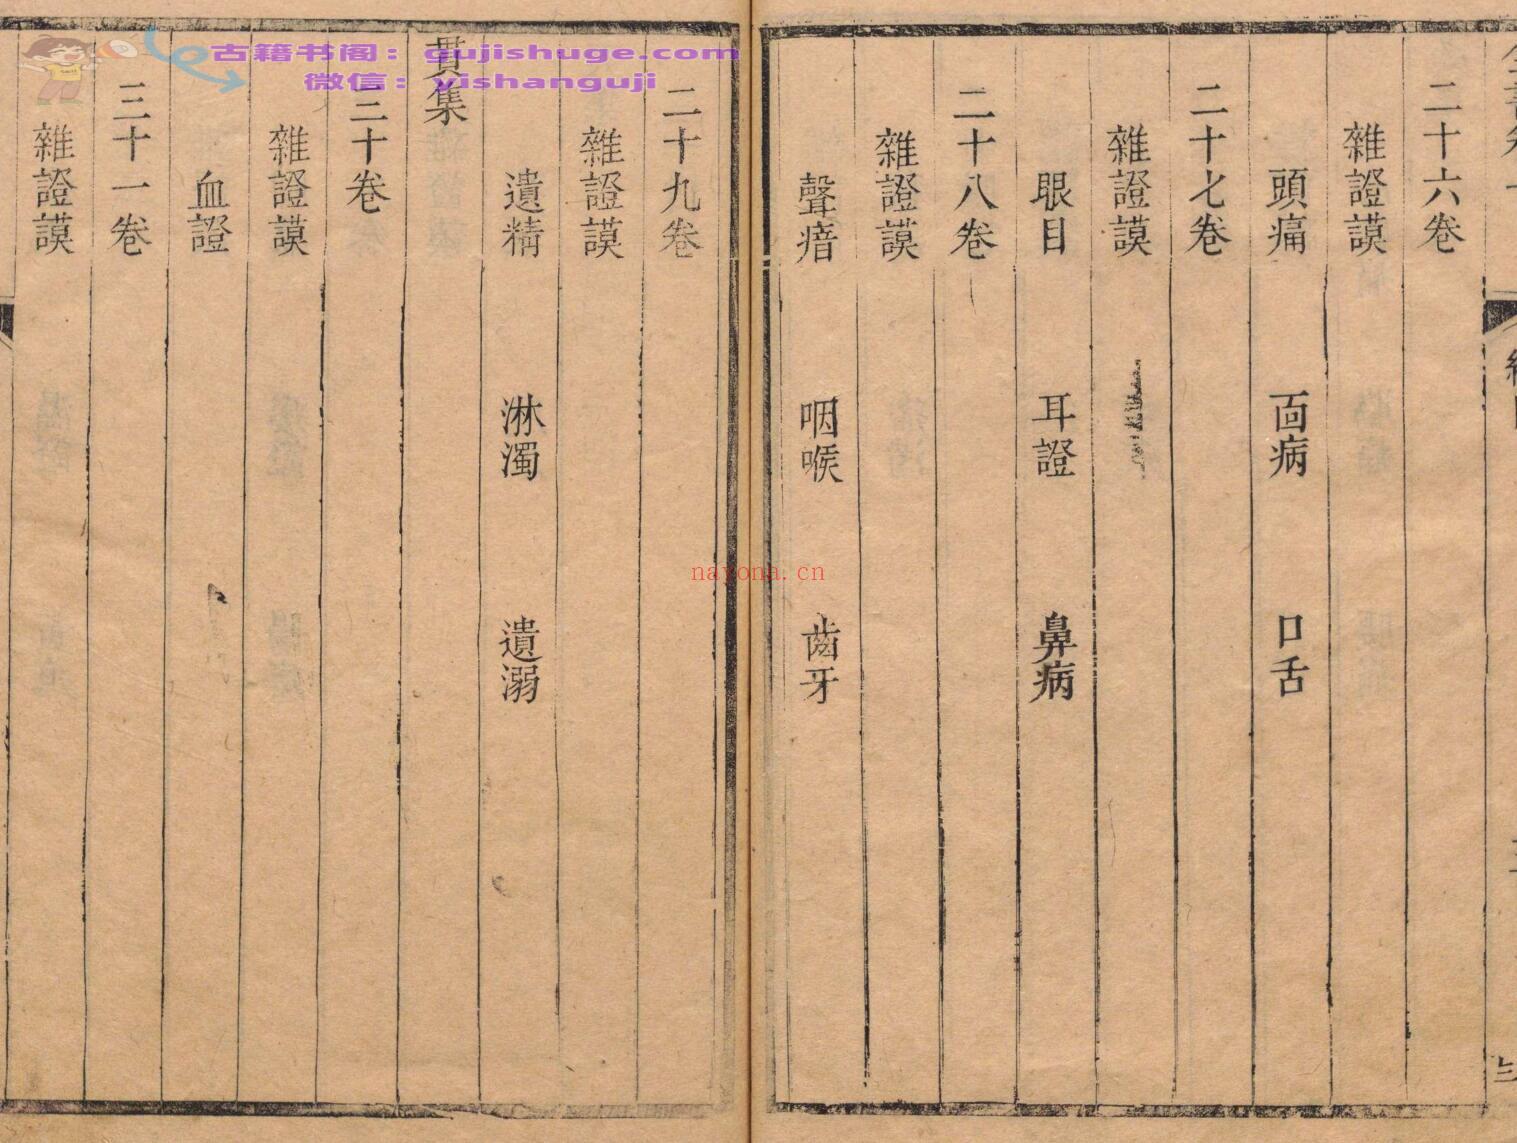 二十六卷
雜證謨
頭痛　面病　口舌
二十七卷
雜證謨
眼目　耳證　鼻病
二十八卷
雜證謨
聲瘖　咽喉　齒牙
二十九卷
雜證謨
遺精　淋濁　遺溺
貫集
三十卷
雜證謨
血證
三十一卷
雜證謨
古籍书阁：gujishuge.com
微信：yishanguji
nayona.cn